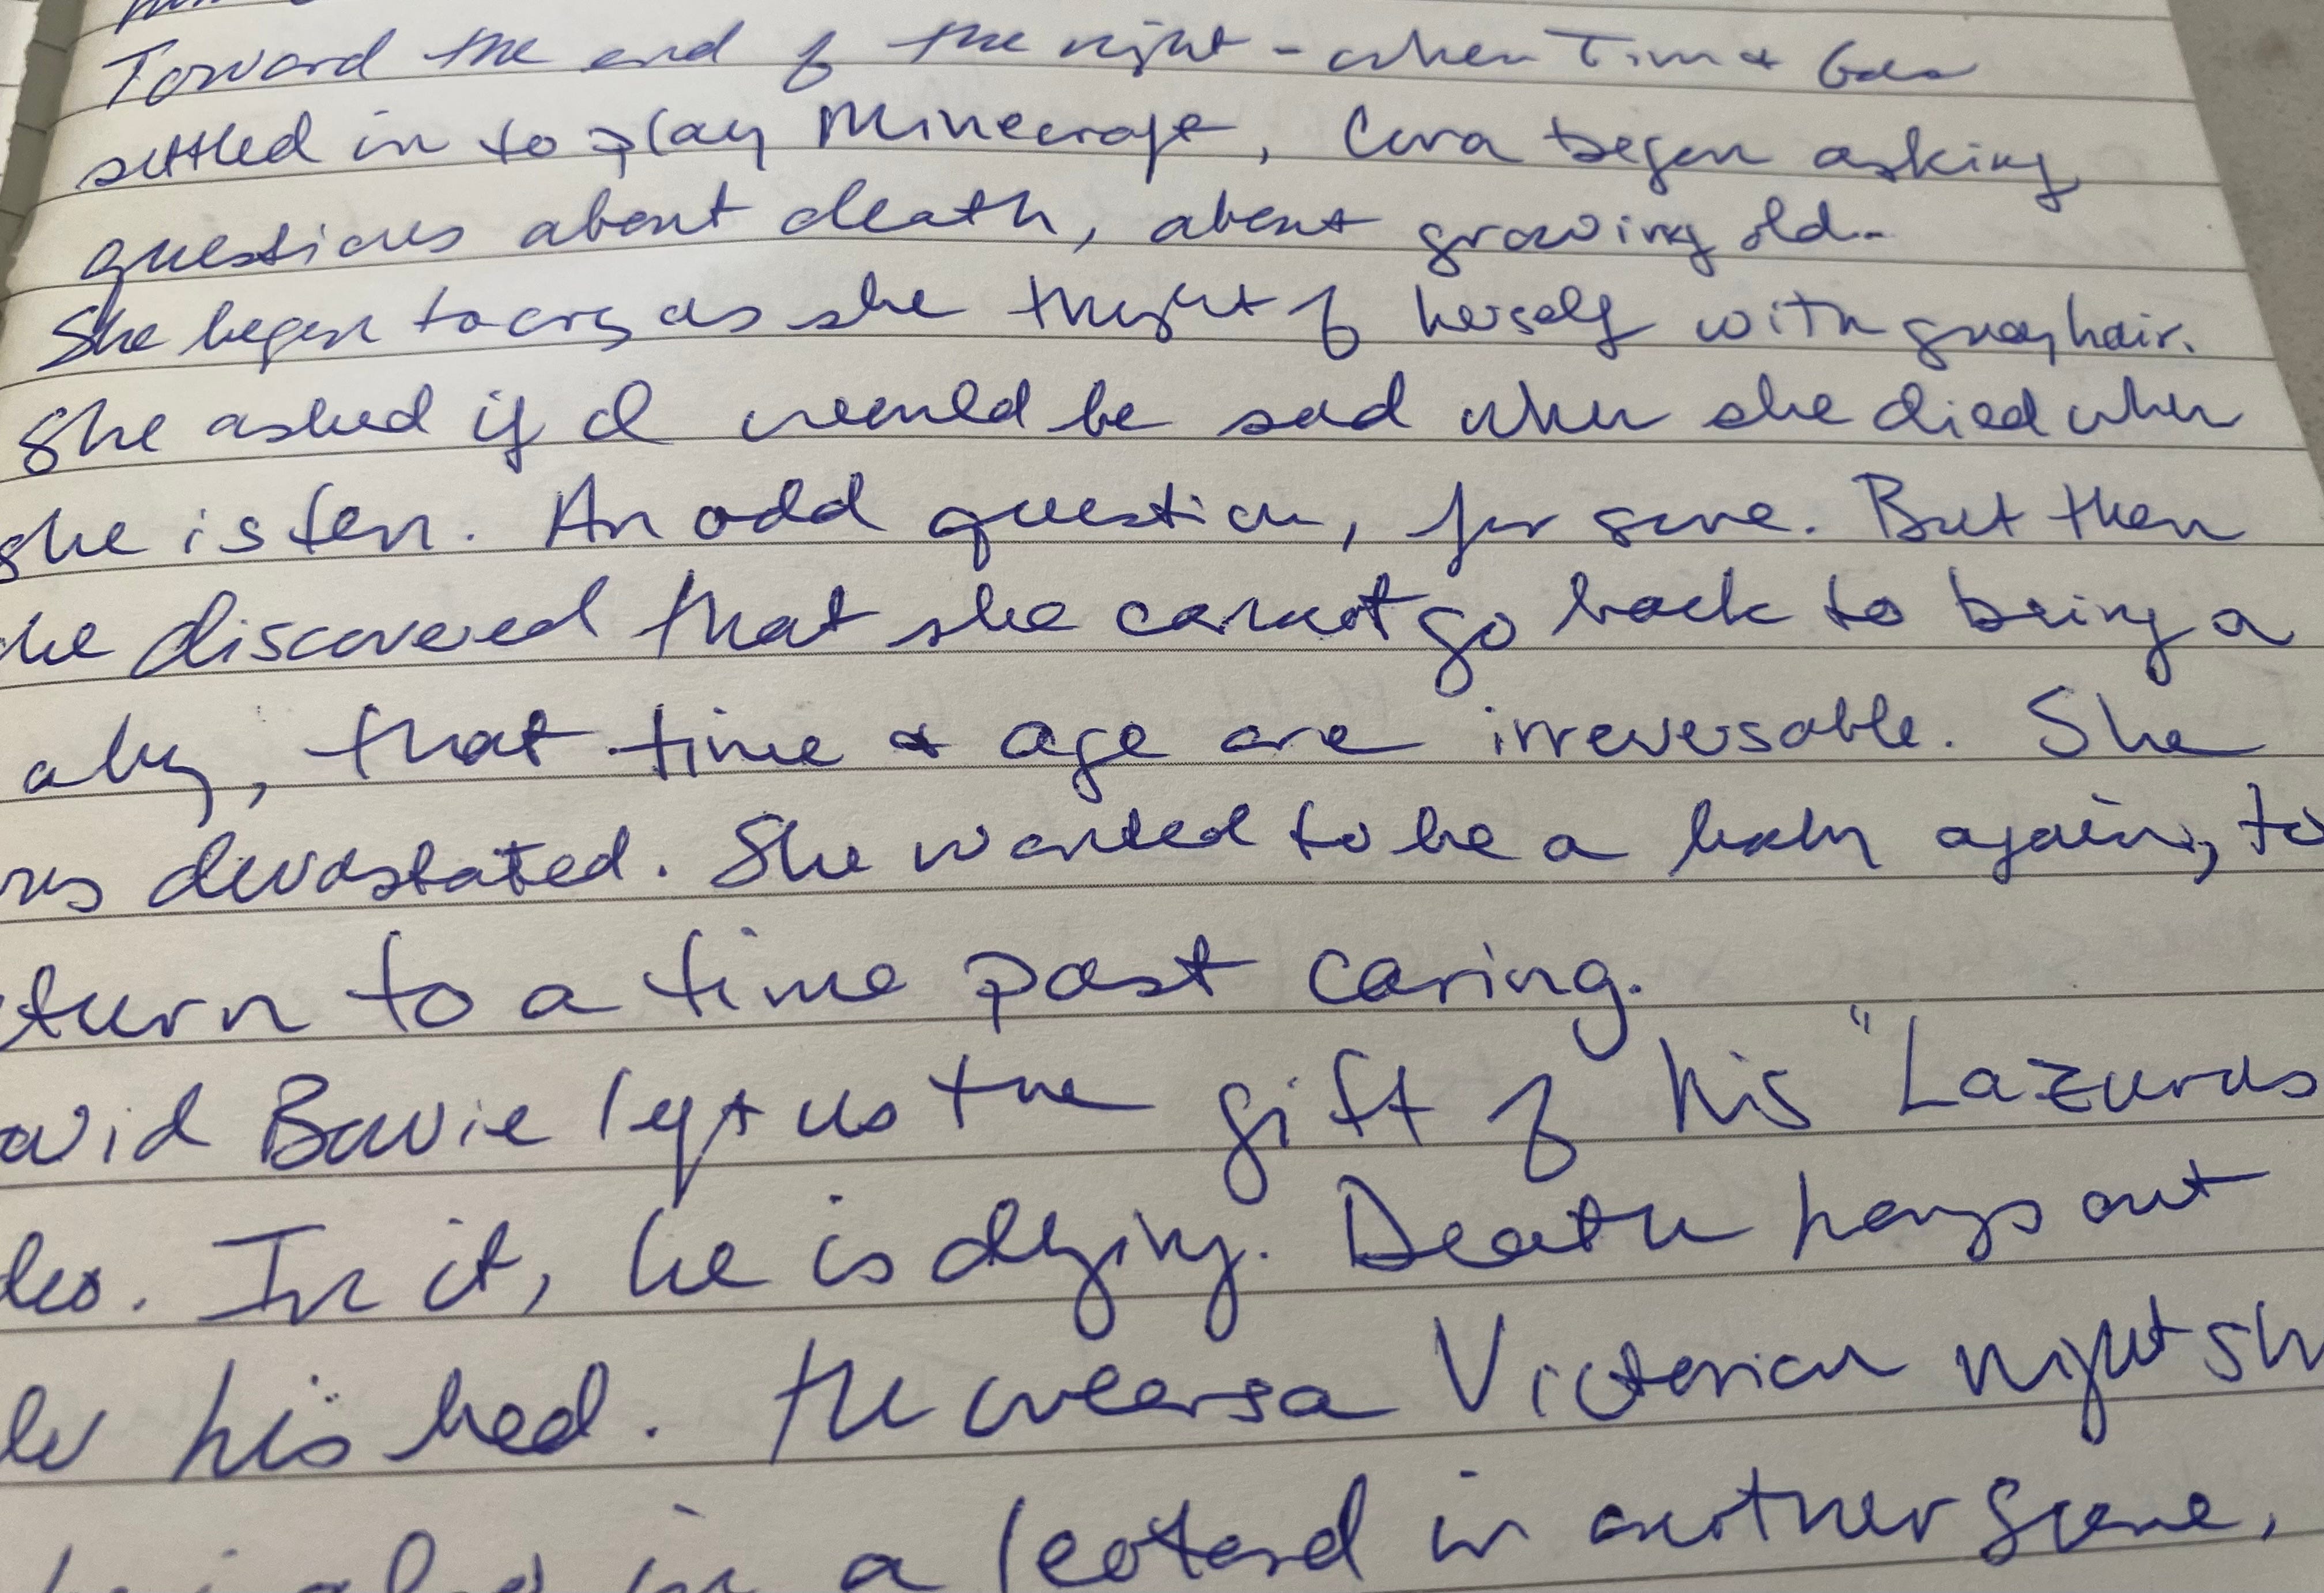 Toward the end of the night - when Tim &
settled in to play Minecraft, Cora began asking
questions about death, about growing old.
She began to cry as she thught of herself with gray hair.
She asked if I would be sad when she died when
she is ten. An odd question, for sure. But then
he discovered that she cannot go back to being a
aby, that time & age are irreversable. She
as devastated. She wanted to be a baby again, to
turn to a time past caring.
avid Bowie left us the gift of his "Lazurus
deo. In it, he is dying. Death hangs out
his bed. He wears a Victorian nightsh
in a leotard in another scene,